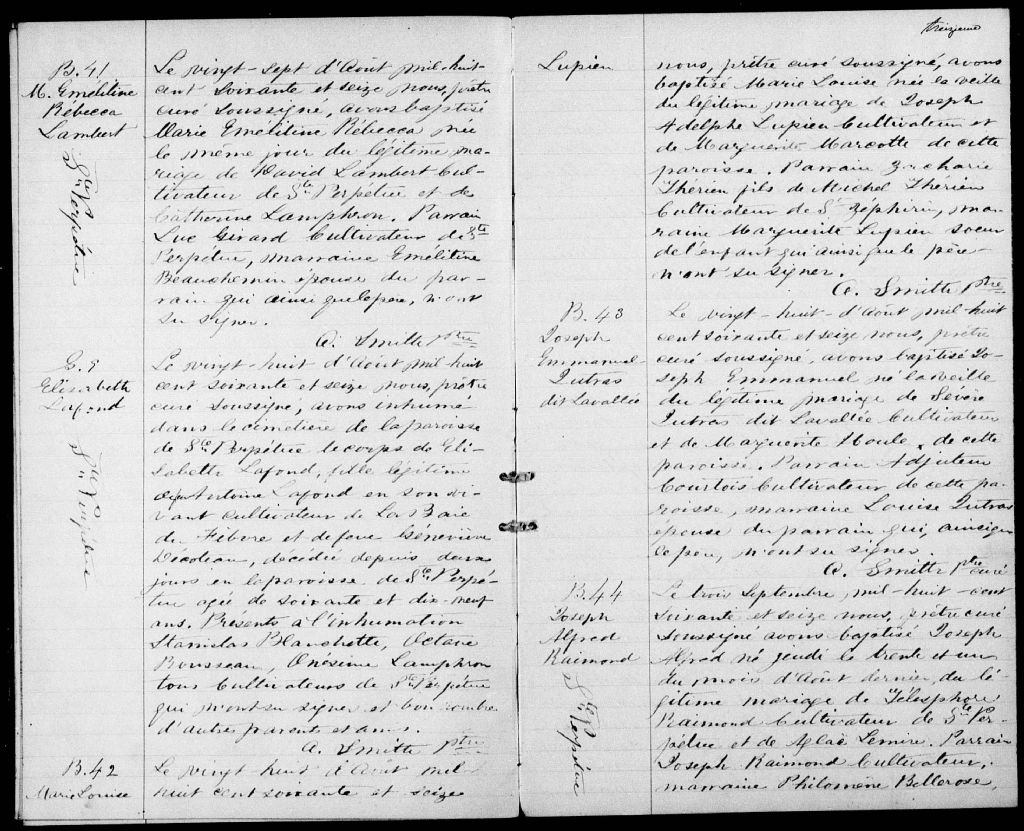 B. 41
M. Eméline
Rébecca
Lambert
Ste Perpétue
Le vingt-sept d'Août mil-huit-
cent soixante et seize nous, prêtre
curé soussigné, avons baptisé
Marie Eméline Rébecca née
le même jour du légitime ma-
riage de David Lambert Cul-
tivateur de Ste Perpétue et de
Catherine Lamphron. Parrain
Luc Girard Cultivateur de Ste
Perpétue, marraine Eméline
Beauchemin épouse du par-
rain qui ainsi que le père, n'ont
su signer.
A. Smith ptre
S. 9
Elisabette
Lafond
Ste Perpétue
Le vingt huit d'Août mil huit
cent soixante et seize nous, prêtre
curé soussigné, avons inhumé
dans le cimetière de la paroisse
de Ste Perpétue le corps de Eli-
sabette Lafond, fille légitime
Antoine Lafond en son vi-
vant cultivateur de La Baie
du Febvre et de feue Géneviève
décédée depuis deux
jours en la paroisse de Ste Perpé-
tue agée de soixante et dix-neuf
ans. Présents à l'inhumation
Stanislas Blanchette, Octave
Rousseau, Onésime Lamphron
tous Cultivateurs de Ste Perpétue
qui n'ont su signer et bon nombre
d'autres parents et amis.
A. Smith ptre
B. 42
Marie Louise
Le vingt huit d'Août mil
huit cent soixante et seize
treizième
Lupien
nous, prêtre curé soussigné, avons
baptisé Marie Louise née la veille
du légitime mariage de Joseph
Adelphe Lupien Cultivateur et
de Marguerite Marcotte de cette
paroisse. Parrain Zacharie
Thérien fils de Michel Thérien
Cultivateur de St Zéphirin, mar-
raine Marguerite Lupien soeur
de l'enfant qui ainsi que le père
n'ont su signer.
A. Smith ptre
B. 43
Joseph
Emmanuel
Dutras
dit Lavallée
Le vingt-huit-d'Août mil-huit
cent soixante et seize nous, prêtre
curé soussigné, avons baptisé Jo-
seph Emmanuel né la veille
du légitime mariage de Sévère
Dutras dit Lavallée Cultivateur
et de Marguerite Houle, de cette
paroisse. Parrain Adjuteur
Courtois Cultivateur de cette pa-
roisse, marraine Louise Dutras
épouse du parrain qui, ainsi que
le père, n'ont su signer.
A. Smith ptre curé
B. 44
Joseph
Alfred
Raimond
Ste Perpétue
Le trois Septembre, mil-huit-cent
soixante et seize nous, prêtre curé
soussigné avons baptisé Joseph
Alfred né jeudi le trente et un
du mois d'Août dernier, du lé-
gitime mariage de Télesphore
Raimond Cultivateur de Ste Per-
pétue et de Aglaé Lemire. Parrain
Joseph Raimond Cultivateur,
marraine Philomène Bellerose,